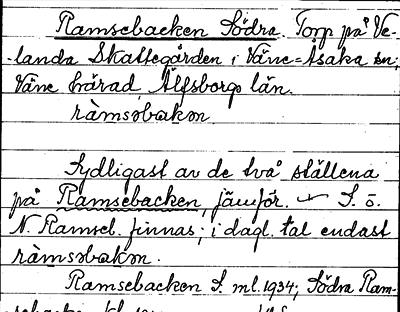 Ramsebacken Södra. Torp på Ve-
landa Skattegården i Väne-Åsaka sn,
Väne härad, Älfsborgs län.
ràmsəbakən.
Sydligast av de två ställena
på Ramsebacken, jämför. S. o.
N. Ramseb. finnas; i dagl. tal endast
ràmsəbakən.
Ramsebacken S. ml. 1934; Södra Ram-